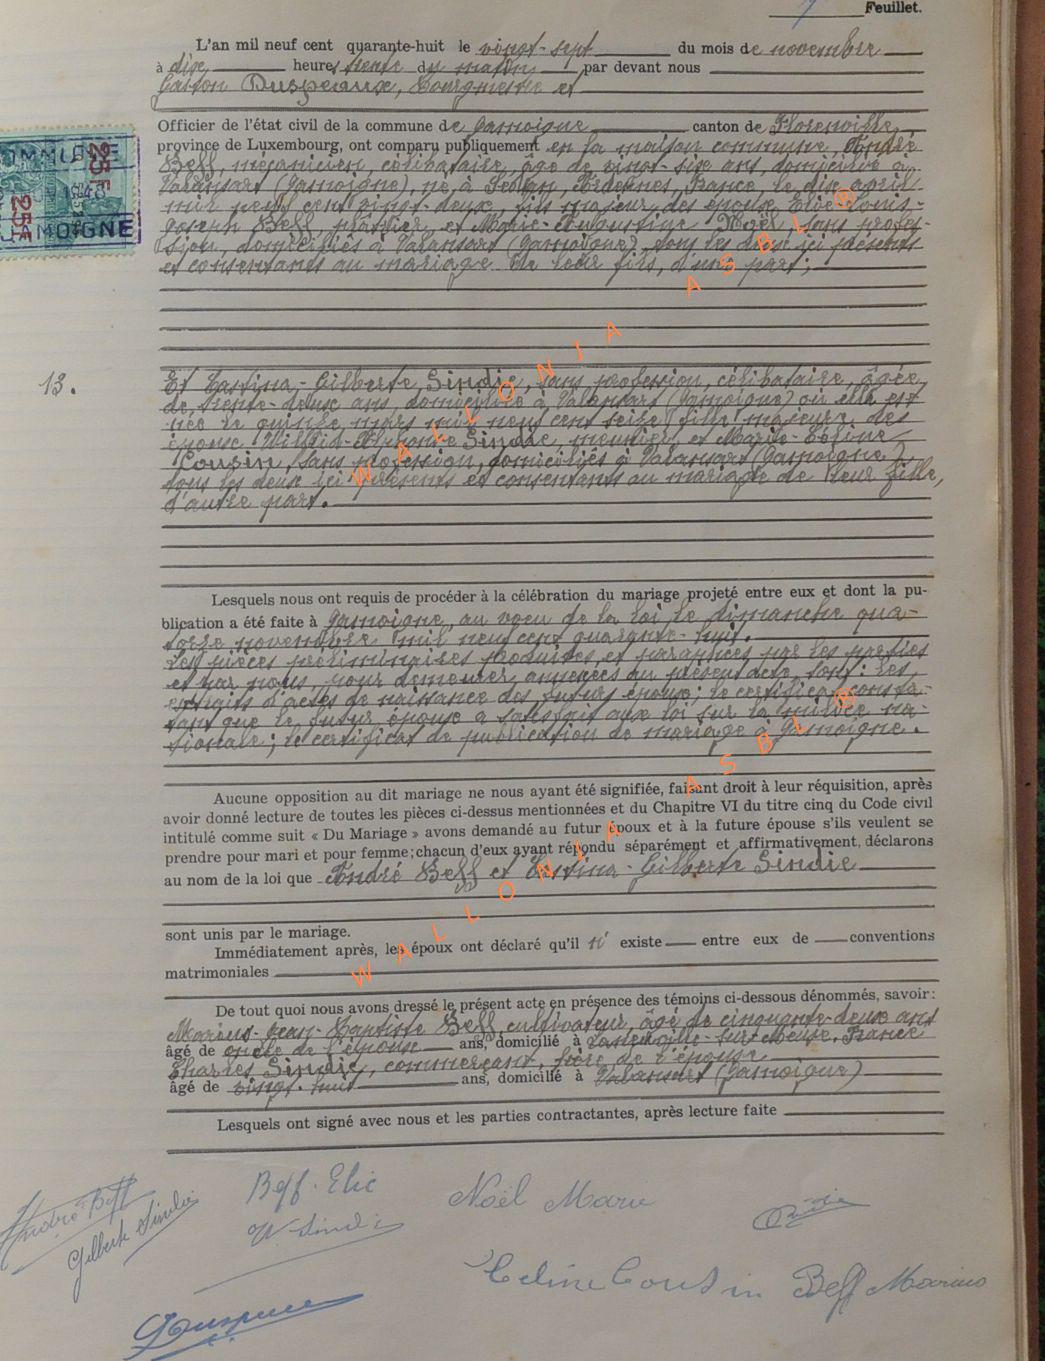 Feuillet.
L'an mil neuf cent quarante-huit le vingt-sept du mois de novembre
à dix heures trente du matin par devant nous
Gaston Duspeaux, Bourgmestre et
Officier de l'état civil de la commune de Jamoigne canton de Florenville
province de Luxembourg, ont comparu publiquement en la maison commune, André
Beff, mécanicien, célibataire, âgé de vingt-six ans, domicilié à
Valansart (Jamoigne), né à Sedan, Ardennes, France, le dix avril
mil neuf cent vingt-deux, fils majeur des époux Elie-Louis-
Joseph Beff, et Marie-Augustine Noël, sans profes-
sion, domiciliés à Valansart (Jamoigne), tous les deux ici présents
et consentants au mariage de leur fils, d'une part;
13.
Et Gilberte Sindic, sans profession, célibataire, âgée
de trente-deux ans, domiciliée à Valansart (Jamoigne) où elle est
née le quinze mars mil neuf cent seize, fille majeure des
époux Sindic, meunier, et Marie-Céline
Cousin, sans profession, domiciliés à Valansart (Jamoigne),
tous les deux ici présents et consentants au mariage de leur fille,
d'autre part.
Lesquels nous ont requis de procéder à la célébration du mariage projeté entre eux et dont la pu-
blication a été faite à Jamoigne, au voeu de la loi le dimanche qua-
torze novembre mil neuf cent quarante-huit.
Les pièces préliminaires produites et paraphées par les parties
et par nous, pour demeurer annexées au présent acte, sont: les
extraits d'actes de naissance des futurs époux; le certificat consta-
tant que le futur époux a satisfait aux loi sur la milice na-
tionale; le certificat de publication de mariage à Jamoigne.
Aucune opposition au dit mariage ne nous ayant été signifiée, faisant droit à leur réquisition, après
avoir donné lecture de toutes les pièces ci-dessus mentionnées et du Chapitre VI du titre cinq du Code civil
intitulé comme suit « Du Mariage » avons demandé au futur époux et à la future épouse s'ils veulent se
prendre pour mari et pour femme; chacun d'eux ayant répondu séparément et affirmativement, déclarons
au nom de la loi que André Beff et Gilberte Sindic
sont unis par le mariage.
Immédiatement après, les époux ont déclaré qu'il n' existe entre eux de conventions
matrimoniales
De tout quoi nous avons dressé le présent acte en présence des témoins ci-dessous dénommés, savoir:
Marius-Jean-Baptiste Beff, cultivateur, âgé de cinquante-deux ans
âgé de oncle de l'époux ans, domicilié à sur-Meuse, France
Charles Sindic, commerçant, frère de l'épouse
âgé de vingt-huit ans, domicilié à Valansart (Jamoigne)
Lesquels ont signé avec nous et les parties contractantes, après lecture faite
André Beff
Gilberte Sindic
Beff-Elie
W Sindic
Noël Marie
Céline Cousin
Beff Marius
COMMUNE
25F
1948
25F
JAMOIGNE
WALLONIA ASBL®
WALLONIA ASBL®